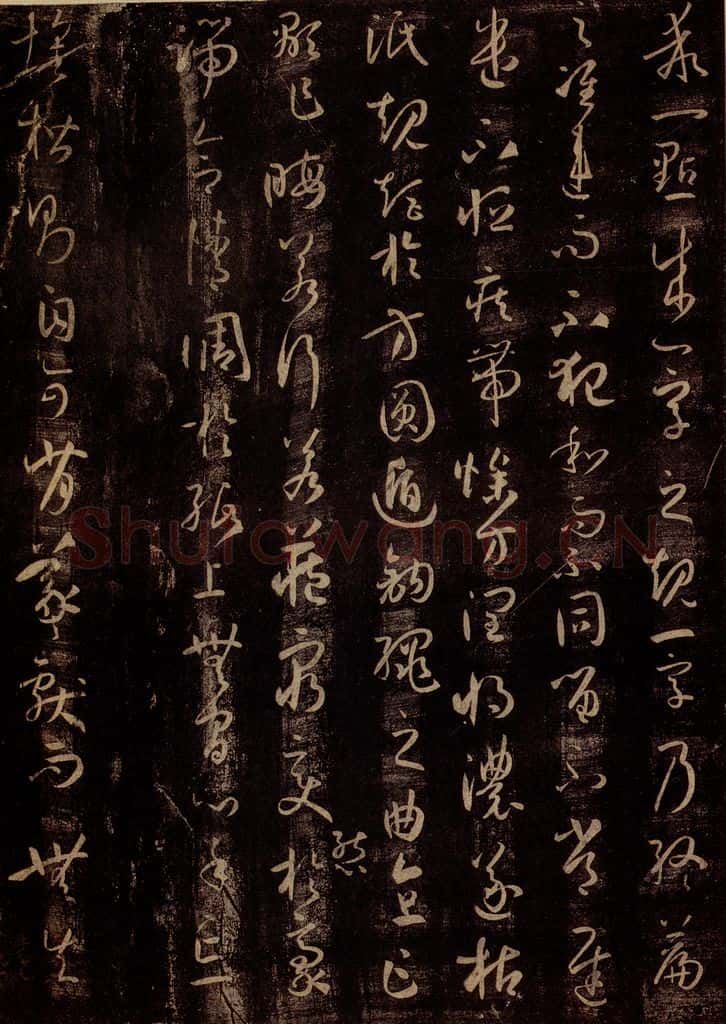 乖一點成一字之規一字乃終篇
之准違而不犯和而不同留不常遲
遣不恒疾帶燥方潤將濃遂枯
泯規矩於方圓遁鉤繩之曲直乍
顯乍晦若行若藏窮變態於毫
端合情調於紙上無間心手忘
懷楷則自可背羲獻而無失
Shufawang.CN